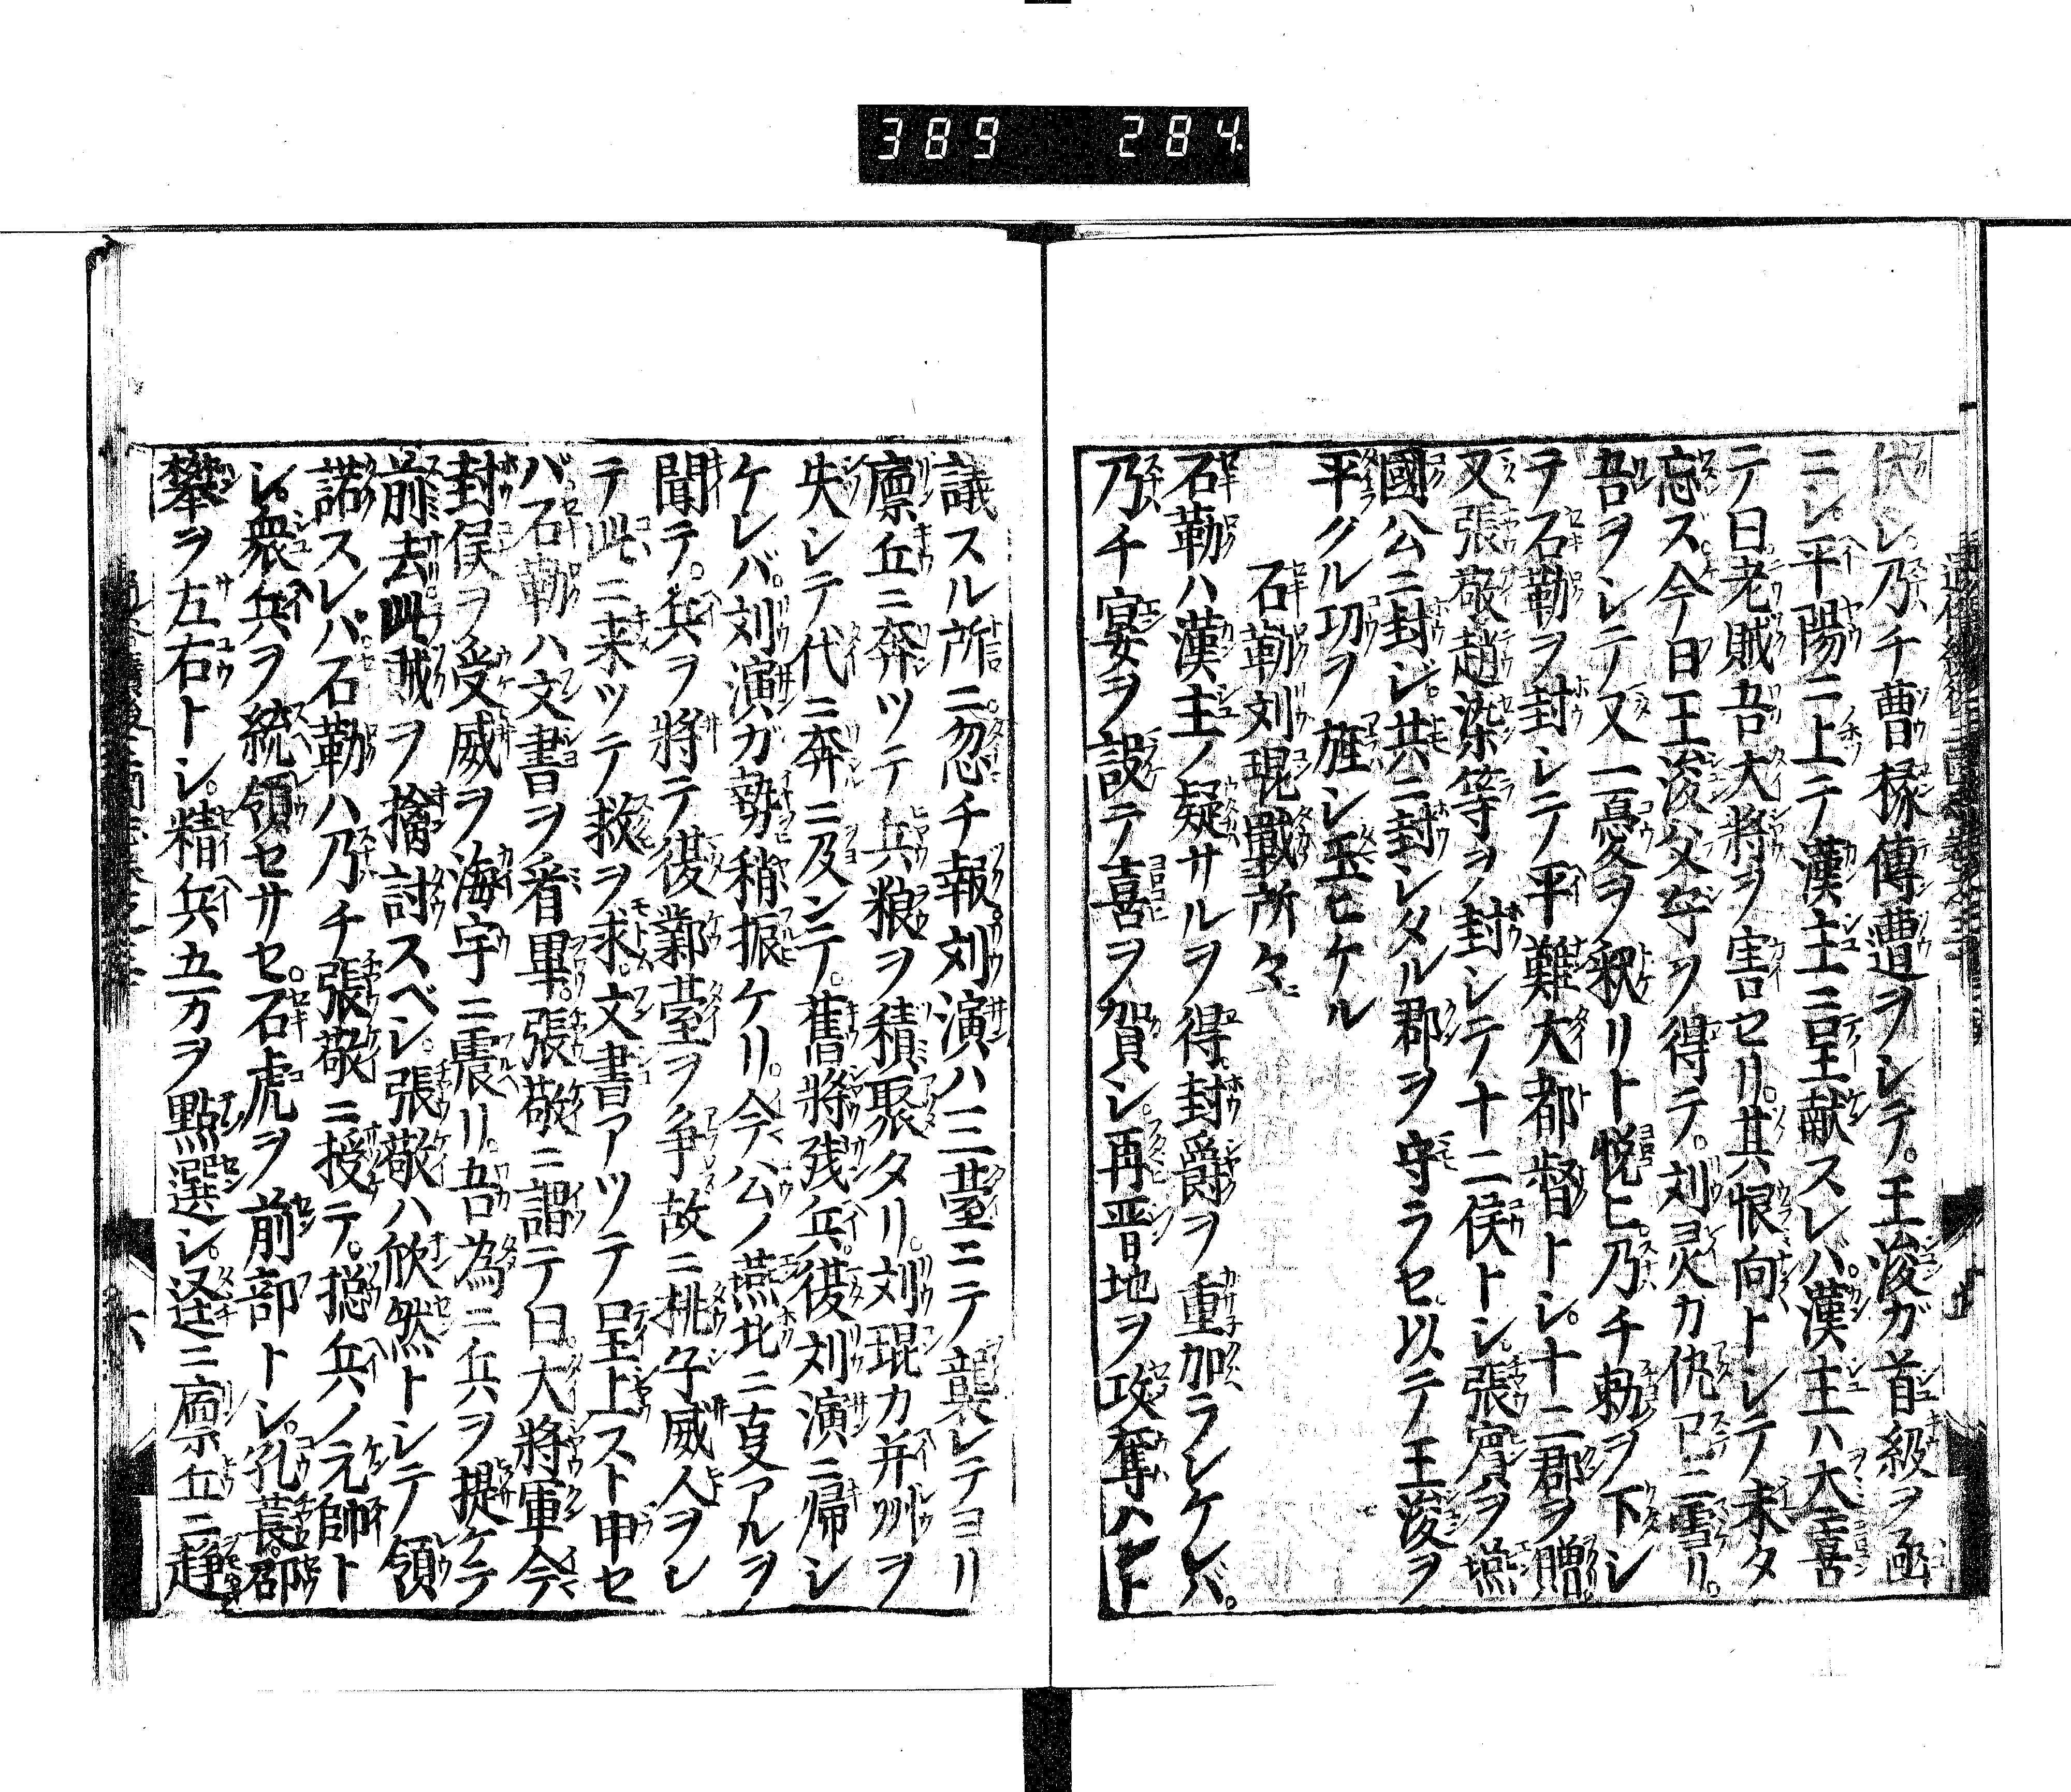 389 284
伏シ乃チ曹椽傳遭ヲシテ。王浚ガ首級ヲ凾
ニシ平陽ニ上テ漢主ニ呈献スレバ。漢主ハ大ニ喜
テ曰老賊吾大將ヲ害セリ。其恨向トシテ未タ
忘ズ今日王浚父子ヲ得テ。刘灵カ仇已ニ雪リ。
吾ヲシテ又一憂ヲ釈リト悦ヒ乃チ勅ヲ下シ
ヲ石勒ヲ封シテ平難大都督トシ。十二郡ヲ贈
又張敬趙染等ヲ封シテ十二侯トシ張賓ヲ
國公ニ封ジ。共ニ封シタル郡ヲ守ラセ以テ王浚ヲ
平グル功ヲ旌シ玉ヒケル
石勒刘琨戰所々ニ
石勒ハ漢主ノ疑サルヲ得封爵ヲ重加ラシケレバ。
乃チ宴ヲ設テ喜ヲ賀シ。再晋地ヲ攻奪ハント
議スル所ニ。忽チ報。刘演ハ三臺ニテ襲レテヨリ
廪丘ニ奔ツテ兵粮ヲ積聚タリ。刘琨カ并州ヲ
失シテ代ニ奔ニ及ンテ。舊將残兵。復刘演ニ帰シ
ケレバ。刘演ガ勢稍振ケリ。今公ノ燕北ニ夏アルヲ
聞テ。兵ヲ將テ復鄴臺ヲ争故ニ桃豹威人ヲシ
テ此ニ来ツテ救ヲ求。文書アツテ呈上スト申セ
バ。石勒ハ文書ヲ看畢。張敬ニ謂テ曰。大將軍今
封侯ヲ受威ヲ海宇ニ震リ。吾為ニ兵ヲ提ケテ
前去此賊ヲ擒討スベシ。張敬ハ欣然トシテ領
諾スレバ石勒ハ乃チ張敬ニ授テ。捴兵ノ元帥ト
シ。衆兵ヲ統領セサセ。石虎ヲ前部トシ。孔萇。郡
攀ヲ左右トシ。精兵五万ヲ點選シ。迳ニ廪丘ニ趣
六